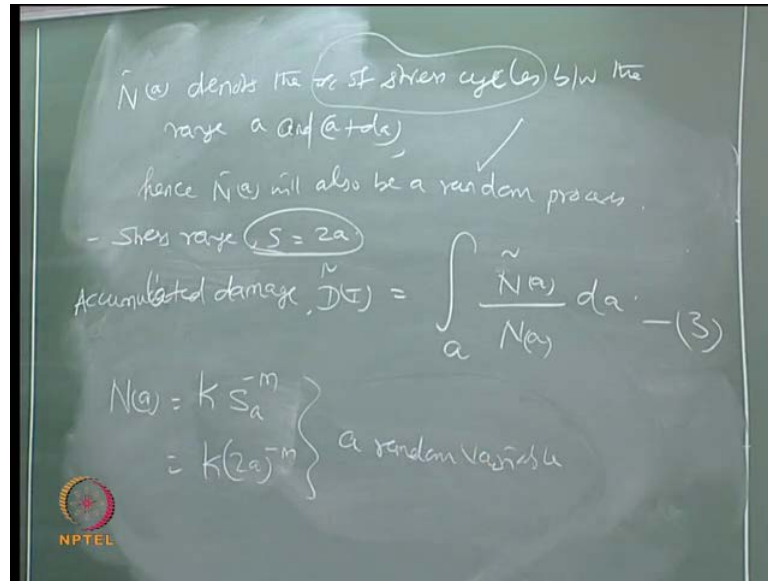 Ñ(a) denots the no of stress cycles b/w the
range a and (a+da),
hence Ñ(a) will also be a random process.
- Stress range, S = 2a
Accumulated damage, D̃(T) = ∫a Ñ(a)/N(a) da - (3)
N(a) = K Sa^-m
= K(2a)^-m } a random variable
NPTEL